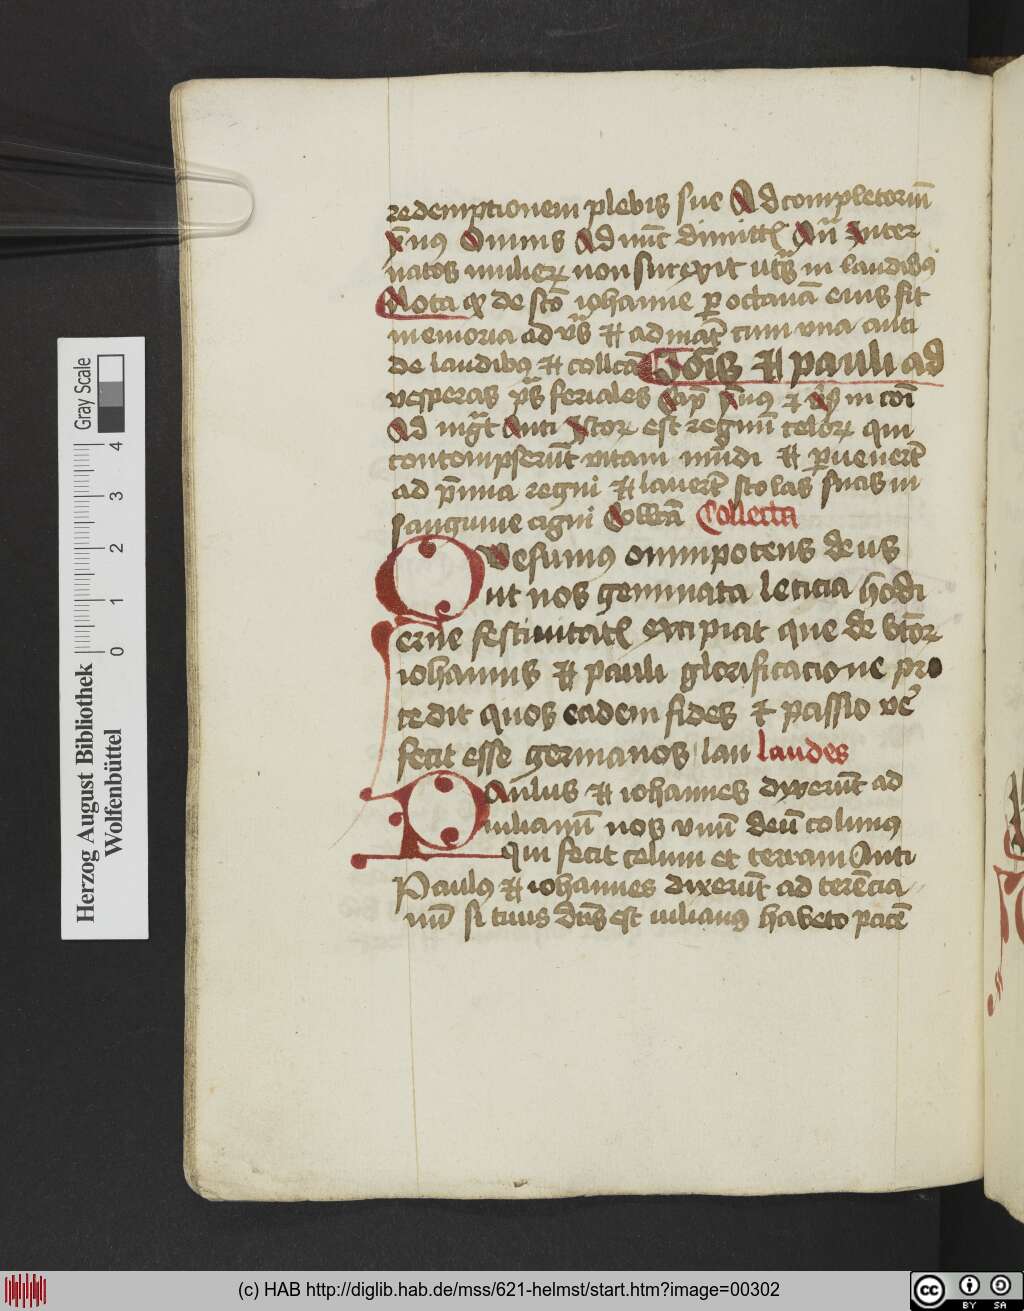 redemptionem plebis sue Ad completoriū
ỹnus Omnis Ad nūc dimittis Añ Inter
natos mulieꝝ non surrexit uts̃ in laudibꝰ
Nota ꝙ de scō iohanne ꝑ octauā eius fit
memoria ad vs̃ et ad mat̃ cum vna anti
de laudibꝰ et collcā Iohis et pauli ad
vesperas ps̃ feriales Cap̃ ỹnus et vs̃ in cōi
Ad mgt̃ Anti Istoꝝ est regnū celoꝝ qui
contempserūt vitam mūdi et ꝑuenerūt
ad p̃mia regni et lauerūt stolas suas in
sanguine agni Collcā Collecta
Quesumus omnipotens deus
ut nos geminata leticia hodi
erne festiuitatis excipiat que de bt̃oꝝ
iohannis et pauli glorificacione pro
cedit quos eadem fides et passio ve
fecit esse germanos lau laudes
Paulus et iohannes dixerūt ad
iulianū nos vnū deū colimꝰ
qui fecit celum et terram Anti
Paulꝰ et iohannes dixerūt ad terēcia
nū si tuus dūs est iulianꝰ habeto pacē
Herzog August Bibliothek
Wolfenbüttel
0 1 2 3 4
Gray Scale
(c) HAB http://diglib.hab.de/mss/621-helmst/start.htm?image=00302
cc BY SA